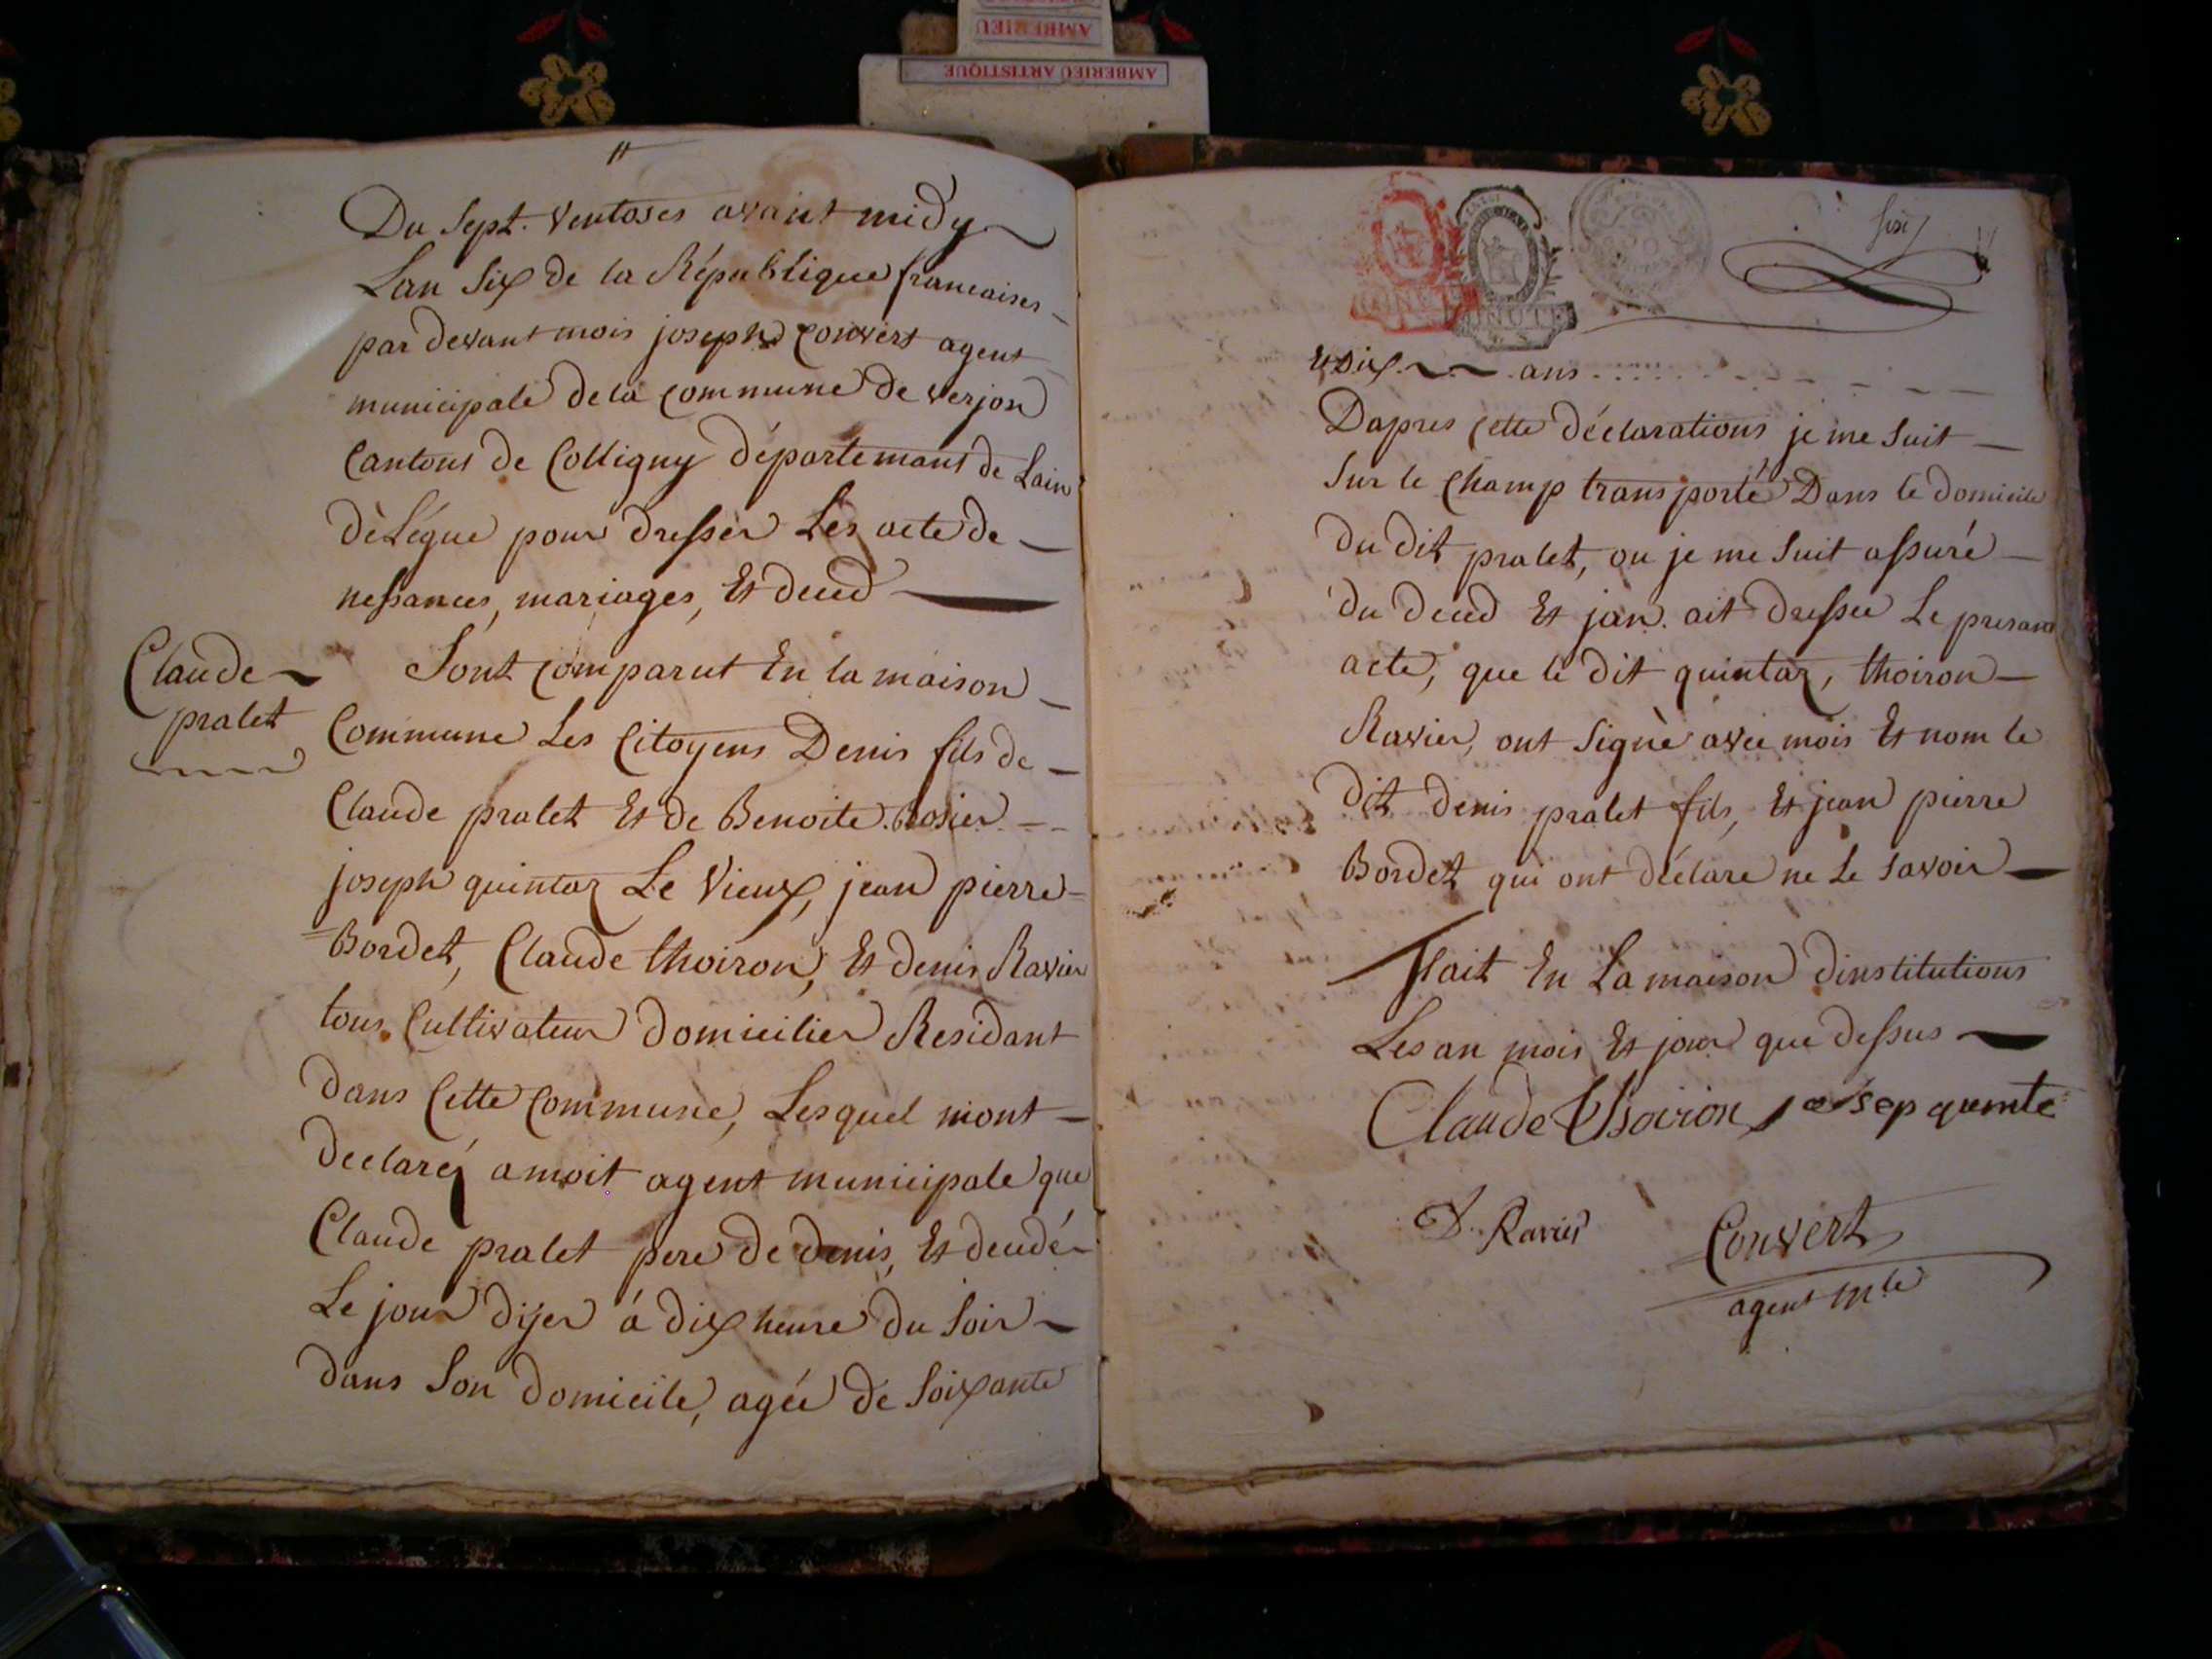 AMBERIEU
AMBERIEU ARTISTIQUE
Du Sept. Ventoses avant midy
Lan Six de la République francaises
par devant mois joseph Convert agent
municipale de la Commune de verjon
Cantons de Colligny départemans de Lain
dèLégue pour dresser Les acte de
nessances, mariages, Et deud
Claude
pralet
Sont Comparut En la maison
Commune Les Citoyens Denis fils de
Claude pralet Et de Benoite Bosier
joseph quintaz Le Vieux, jean pierre
Bordet, Claude thoiron, Et denis Ravier
tous Cultivateur domicilier Residant
dans Cette Commune, Lesquel mont
declaréz a moit agent municipale que
Claude pralet pere de denis, Et deudé
Le jour dijer á dix heure du Soir
dans Son domicile, agée de Soixante
six
MINUTE
MINUTE
Et Dix ans
Dapres Cette déclarations je me Suit
Sur le Champ transporté Dans le domicile
du dit pralet, ou je me Suit assuré
du deud Et jan. ait dressee Le presant
acte, que le dit quintaz, thoiron
Ravier, ont Signè avec mois Et nom le
dit denis pralet fils, Et jean pierre
Bordet qui ont déclare ne Le savoir
Fait En La maison dinstitutions
Les an mois Et jour que dessus
Claude Thoiron josep quemte
D. Ravier
Convert
agent mle